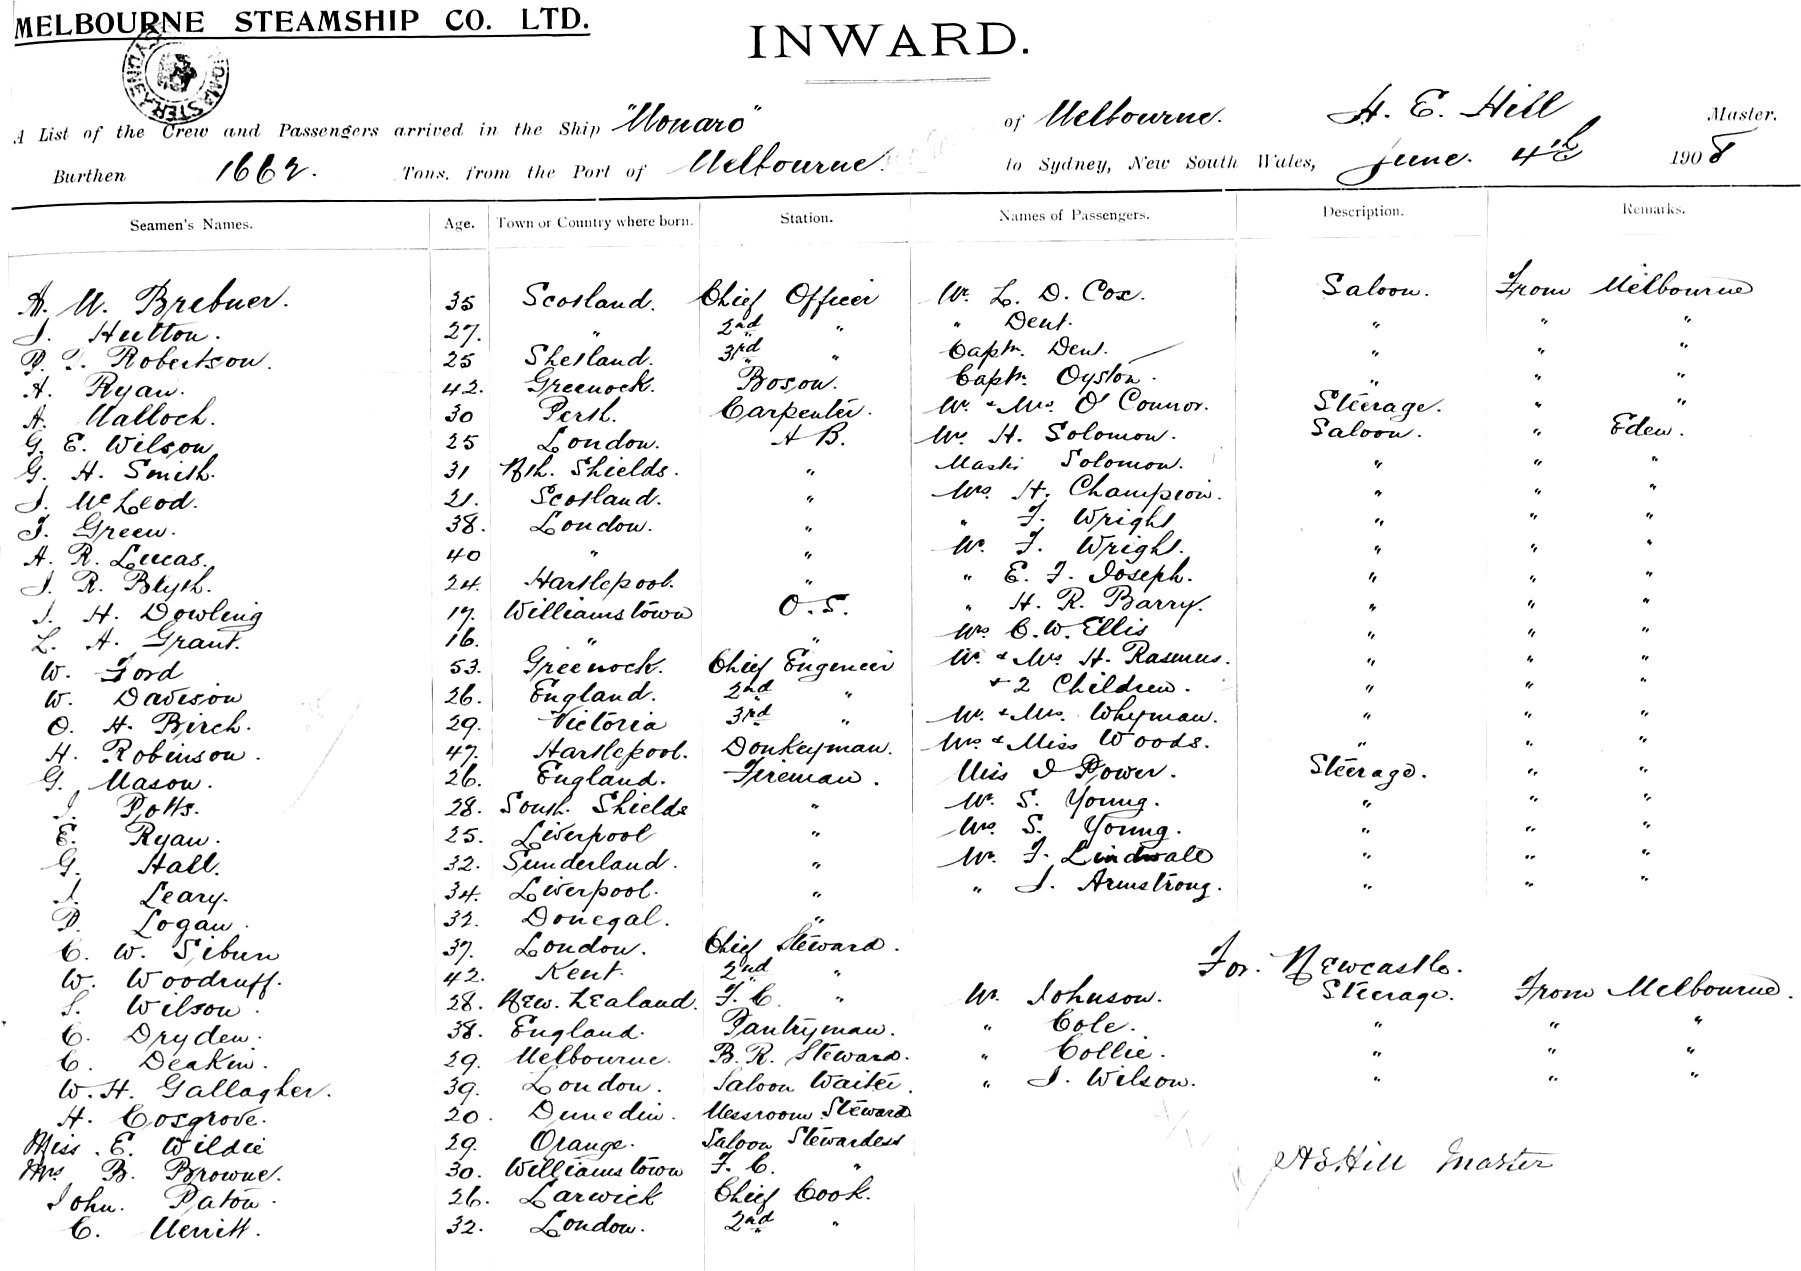 MELBOURNE STEAMSHIP CO. LTD.
INWARD.
A List of the Crew and Passengers arrived in the Ship "Monaro" of Melbourne. H. E. Hill Master.
Burthen 1662. Tons, from the Port of Melbourne. to Sydney, New South Wales, June. 4th 1908
Seamen's Names. Age. Town or Country where born. Station. Names of Passengers. Description. Remarks.
A. M. Brebner. 35 Scotland. Chief Officer Mr. L. D. Cox. Saloon. From Melbourne
J. Hutton. 27. " 2nd " " Dent. " " "
P. T. Robertson. 25 Shetland. 3rd " Captn. Dent. " " "
A. Ryan. 42. Greenock. Boson. Captn. Oyston. " " "
A. Malloch. 30 Perth. Carpenter. Mr. & Mrs. O'Connor. Steerage. " "
G. E. Wilson 25 London. A B. Mr. H. Solomon. Saloon. " Eden.
G. H. Smith. 31 Nth. Shields. " Mastr Solomon. " " "
J. McLeod. 21. Scotland. " Mrs. H. Champion. " " "
J. Green. 38. London. " " F. Wright " " "
A. R. Lucas. 40 " " Mr. F. Wright. " " "
J. R. Blyth. 24. Hartlepool. " " E. F. Joseph. " " "
J. H. Dowling 17. Williamstown O.S. " H. R. Barry. " " "
L. A. Grant. 16. " " Mrs C. W. Ellis " " "
W. Ford 53. Greenock. Chief Engeneer Mr. & Mrs H. Rasmus. " " "
W. Davison 26. England. 2nd " + 2 Children. " " "
O. H. Birch. 29. Victoria 3rd " Mr. & Mrs. Whyman. " " "
H. Robinson. 47. Hartlepool. Donkeyman. Mrs & Miss Woods. " " "
G. Mason. 26. England. Fireman. Miss I Power. Steerage. " "
J. Potts. 28. South Shields " Mr. S. Young. " " "
E. Ryan. 25. Liverpool " Mrs S. Young. " " "
G. Hall. 32. Sunderland. " Mr. F. Lindwall " " "
J. Leary. 34. Liverpool. " " J. Armstrong. " " "
P. Logan. 32. Donegal. "
C. W. Sibun 37. London. Chief Steward.
For. Newcastle.
W. Woodruff. 42. Kent. 2nd "
S. Wilson. 28. New. Zealand. F. C. " Mr. Johnson. Steerage. From Melbourne.
C. Dryden. 38. England. Pantryman. " Cole. " " "
C. Deakin. 29. Melbourne. B. R. Steward. " Collie. " " "
W. H. Gallagher. 39. London. Saloon Waiter. " J. Wilson. " " "
H. Cosgrove. 20. Dunedin. Messroom Steward
Miss. E. Wildie 29. Orange. Saloon Stewardess
Mrs B. Browne. 30. Williamstown F. C. "
HEHill Master
John. Paton. 26. Larwick Chief Cook.
C. Merritt. 32. London. 2nd "